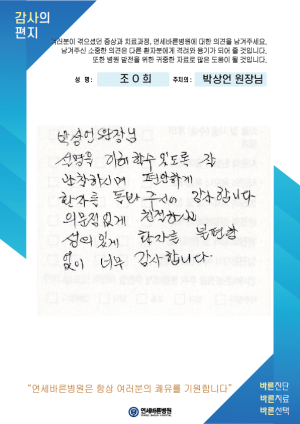 감사의
편지
여러분이 겪으셨던 증상과 치료과정, 연세바른병원에 대한 의견을 남겨주세요.
남겨주신 소중한 의견은 다른 환자분에게 격려와 용기가 되어 줄 것입니다.
또한 병원 발전을 위한 귀중한 자료로 많은 도움이 될 것입니다.
성 명 : 조 O 희 주치의 : 박상언 원장님
박상언 원장님
설명을 이해할수 있도록 잘
말씀하시며 편안하게
환자를 돌봐 주셔서 감사합니다
의문점없게 친절하시고
성의있게 환자를 불편함
없이 너무 감사합니다.
"연세바른병원은 항상 여러분의 쾌유를 기원합니다"
연세바른병원
바른진단
바른치료
바른선택